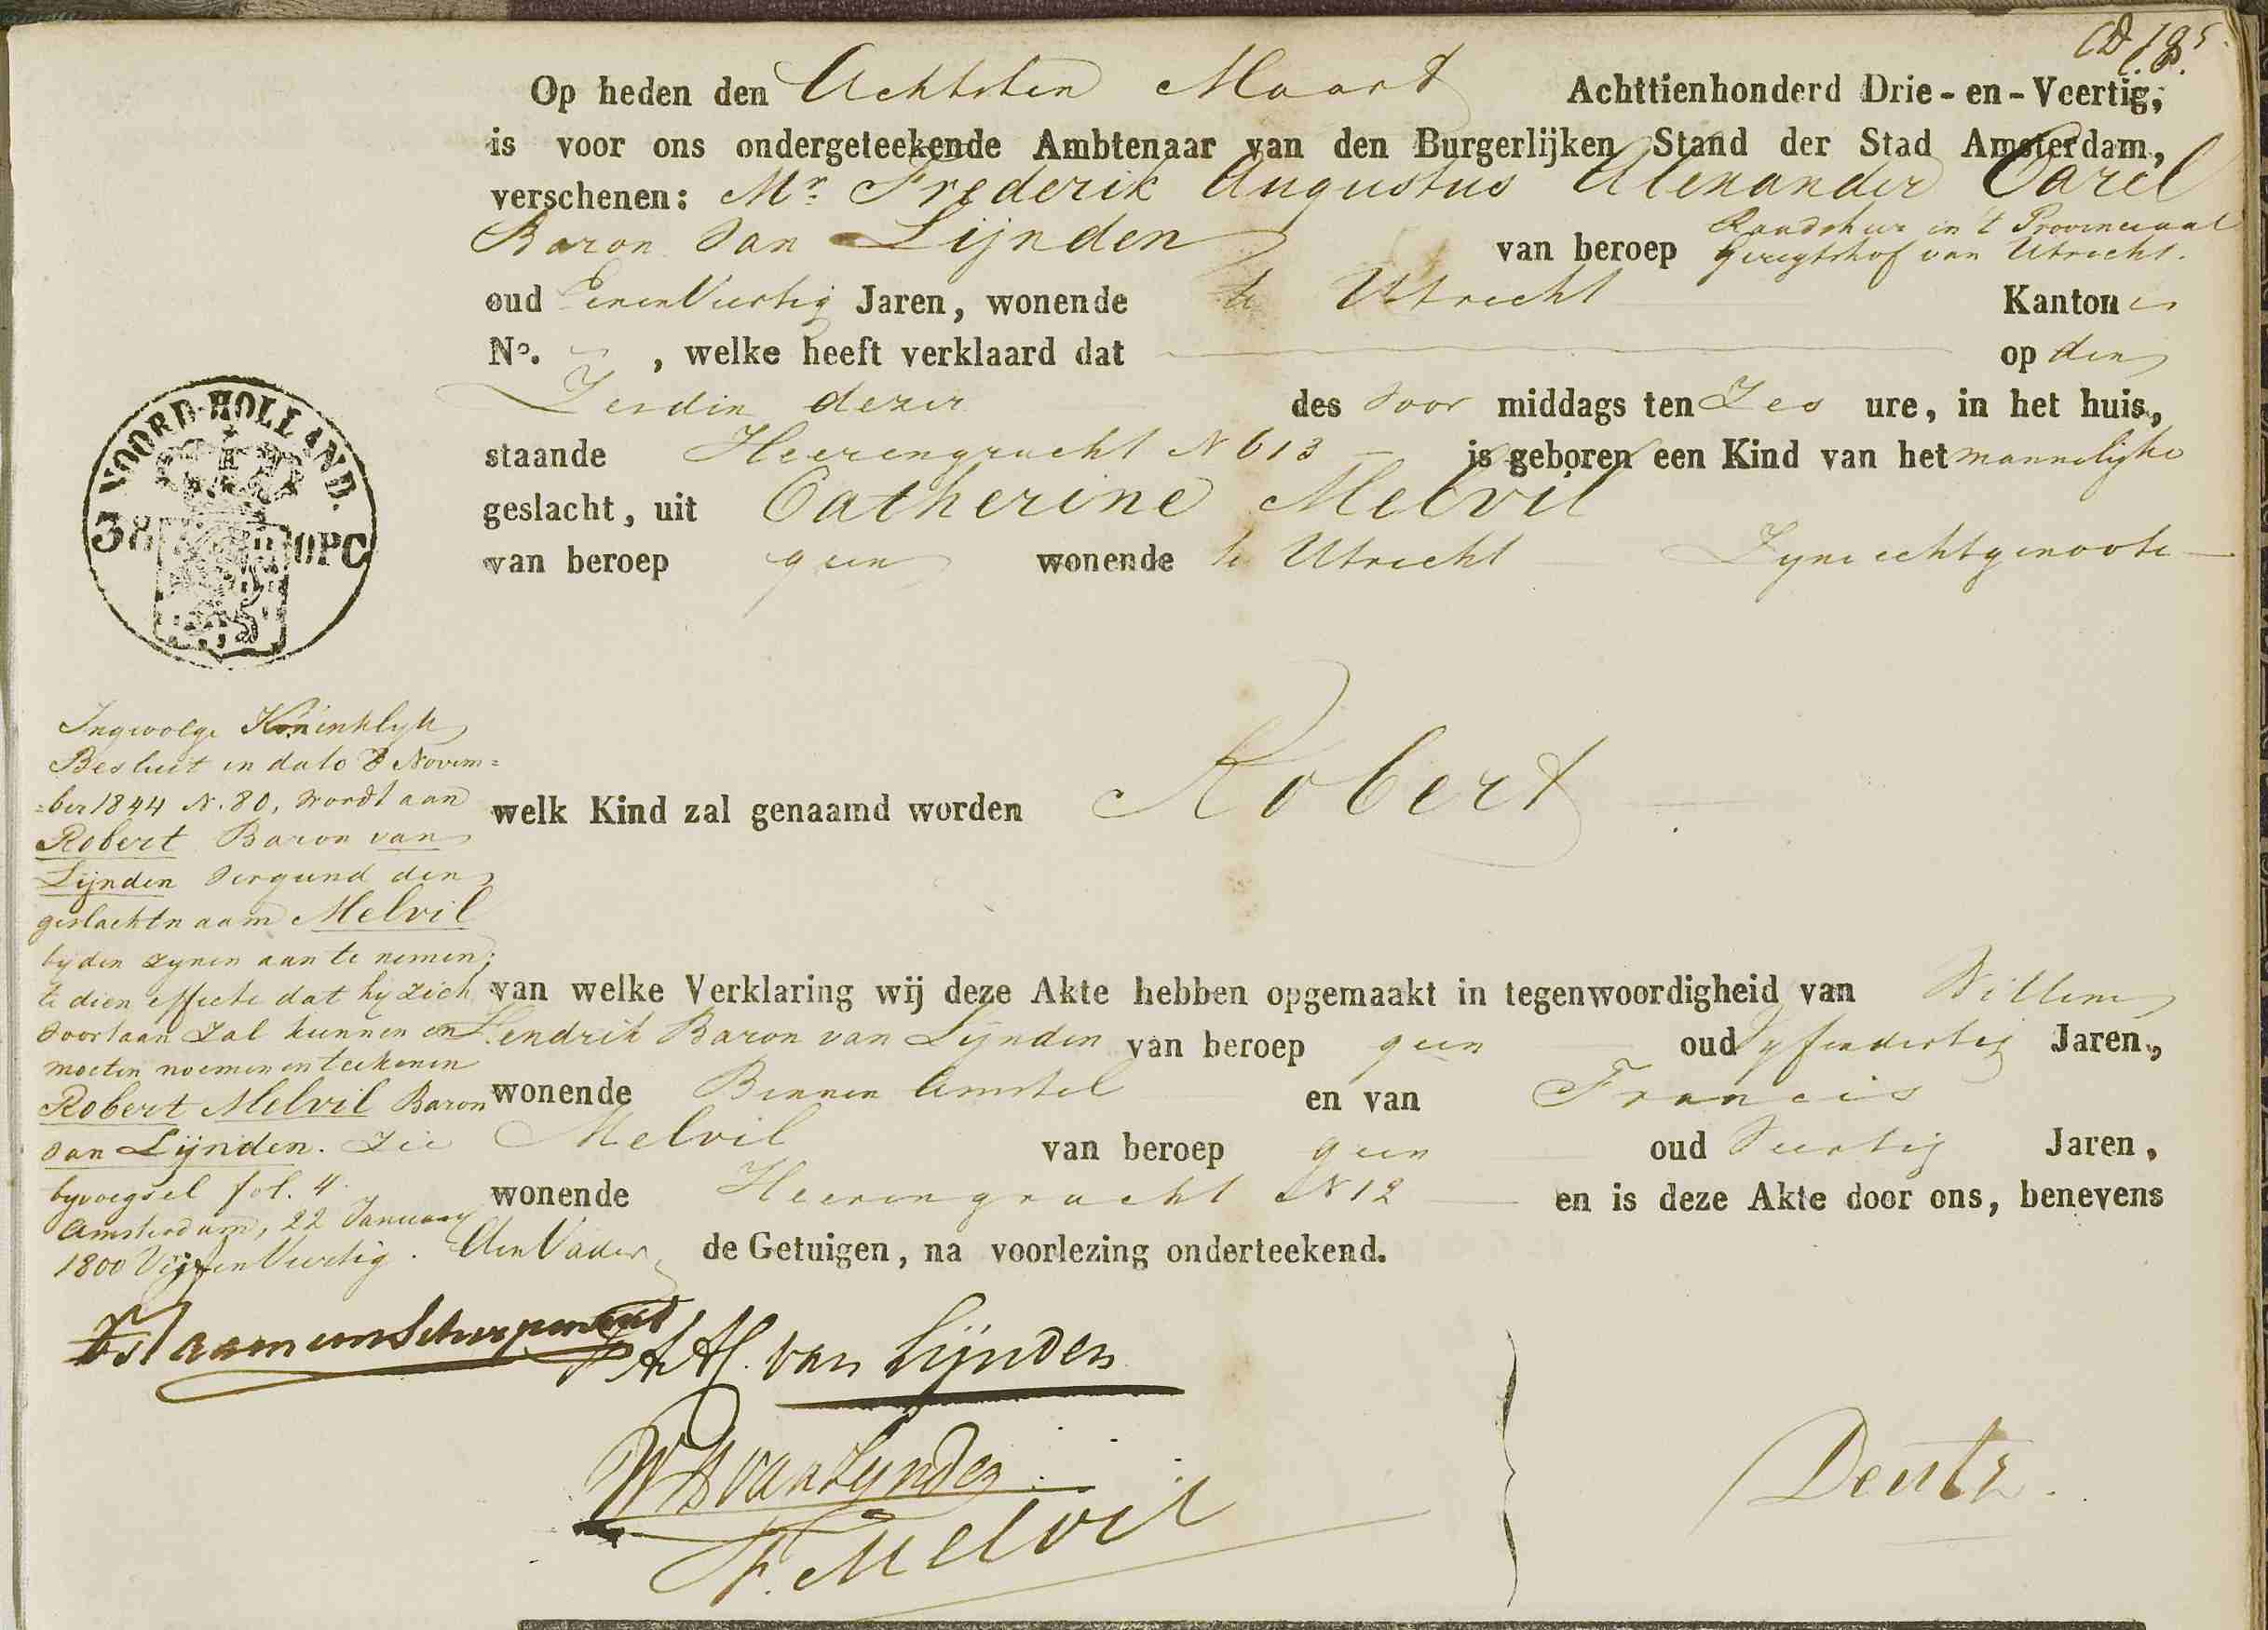 Op heden den Achtsten Maart Achttienhonderd Drie-en-Veertig,
is voor ons ondergeteekende Ambtenaar van den Burgerlijken Stand der Stad Amsterdam,
verschenen: Mr. Frederik Augustus Alexander Carel
Baron van Lijnden van beroep Raadsheer in 't Provinciaal
Geregtshof van Utrecht.
oud EenenVeertig Jaren, wonende te Utrecht Kanton
No. , welke heeft verklaard dat op den
Zesden dezer des voor middags ten Zes ure, in het huis,
staande Heerengracht N 613 is geboren een Kind van het mannelijke
geslacht, uit Catherine Melvil
van beroep geen wonende te Utrecht Zijne echtgenoote
VOORD-HOLLAND.
38 OPC
welk Kind zal genaamd worden Robert
van welke Verklaring wij deze Akte hebben opgemaakt in tegenwoordigheid van Willem
Hendrik Baron van Lijnden van beroep geen oud Vyfendertig Jaren,
wonende Binnen Amstel en van Francis
Melvil van beroep geen oud Veertig Jaren,
wonende Heerengracht N 12 en is deze Akte door ons, benevens
den Vader de Getuigen, na voorlezing onderteekend.
Ingevolge Koninklyk
Besluit in dato 8 Novem=
=ber 1844 N. 80, wordt aan
Robert Baron van
Lijnden vergund den
geslachtnaam Melvil
by den zynen aan te nemen;
te dien effecte dat hy zich
voortaan zal kunnen en
moeten noemen en teekenen
Robert Melvil Baron
van Lijnden. Zie
byvoegsel fol. 4.
Amsterdam, 22 January
1800 Vijfen Veertig.
van Lijnden
WH van Lynden
F. Melvil
Deutz.